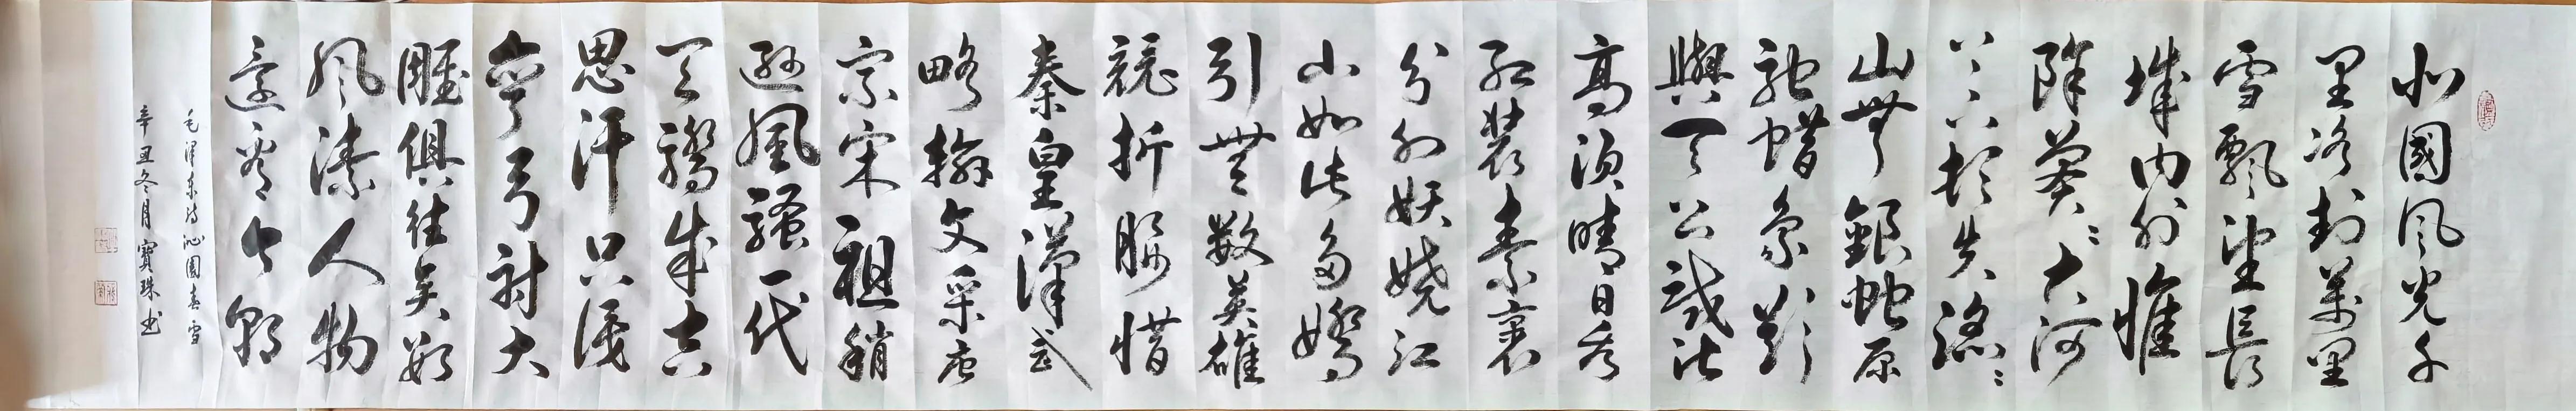 北國風光千
里冰封萬里
雪飄望長
城内外惟
餘莽々大河
上下頓失滔々
山舞銀蛇原
馳蠟象欲
與天公試比
高須晴日看
紅裝素裹
分外妖嬈江
山如此多嬌
引無數英雄
競折腰惜
秦皇漢武
略輸文采唐
宗宋祖稍
遜風騷一代
天驕成吉
思汗只識
彎弓射大
雕俱往矣數
風流人物
還看今朝
毛澤東詩沁園春雪
辛丑冬月寶珠书